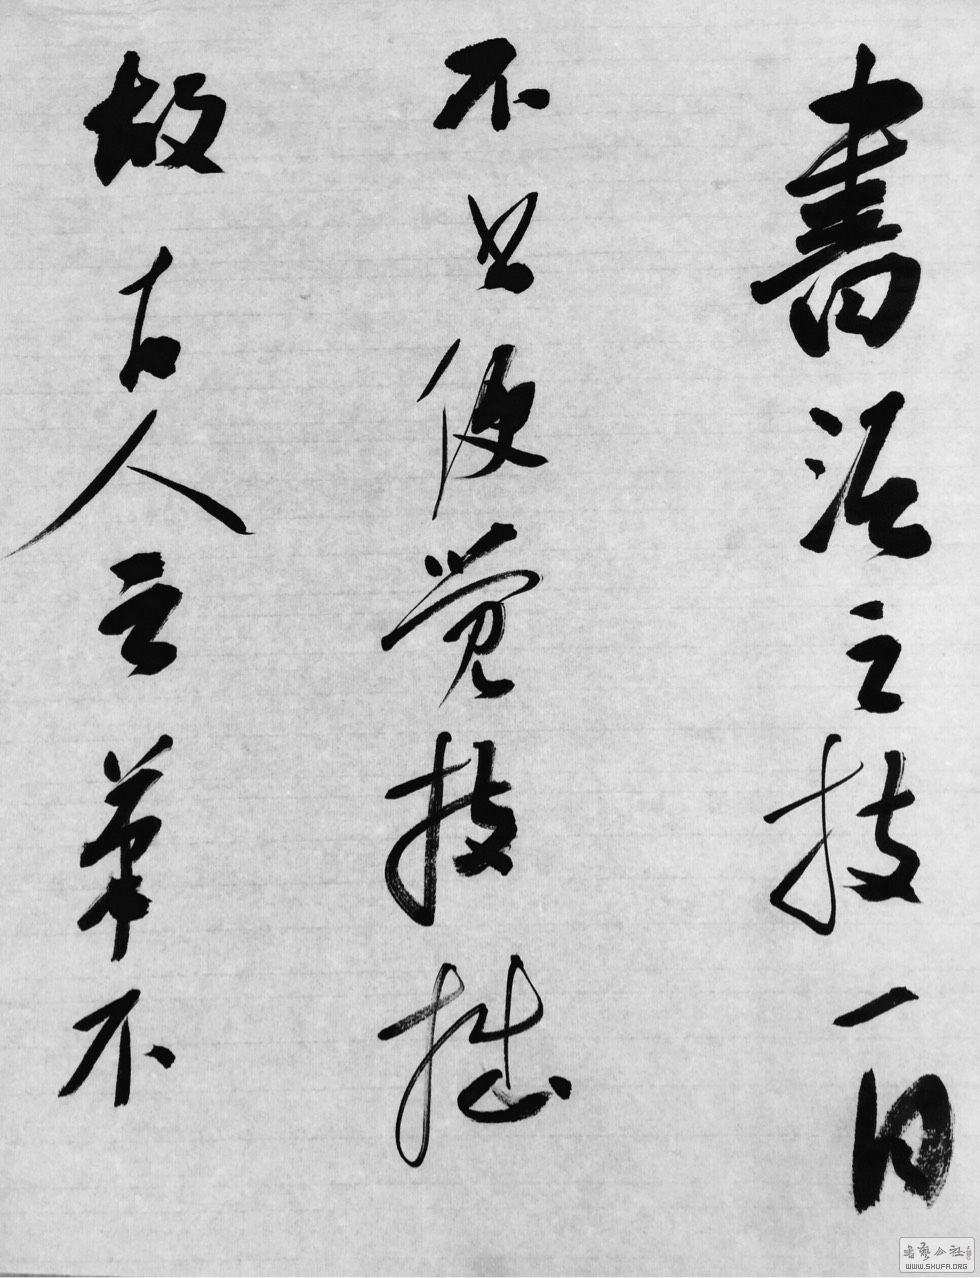 書法之技一日
不書便觉技拙
故古人云筆不
書藝公社
WWW.SHUFA.ORG